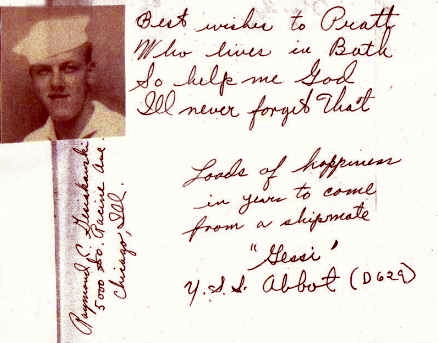 Best wishes to Pratt
Who lives in Bath
So help me God
Ill never forget That
Loads of happiness
in years to come
from a shipmate
"Gessi"
U.S.S. Abbot (D629)
Raymond
5000 So. Racine Ave.
Chicago, Ill.